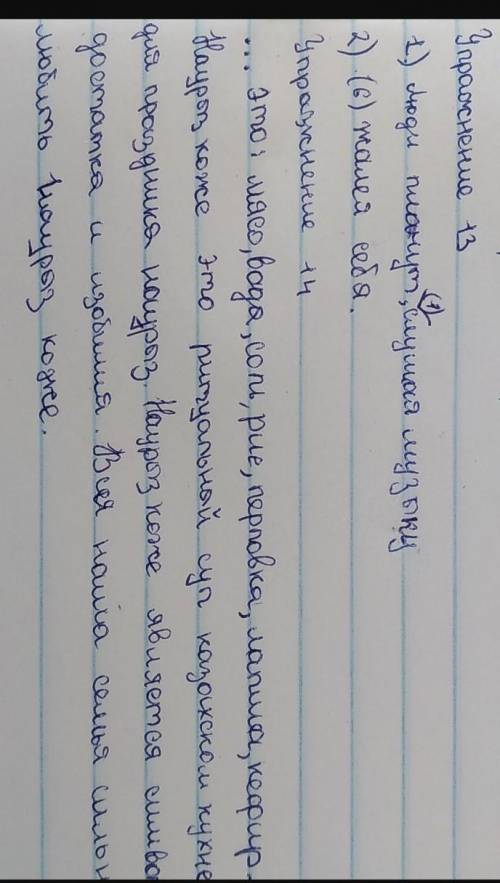 Упражнение 13
1) люди плачут, (1) слушая музыку
2) (6) жалея себя.
Упражнение 14
... это: мясо, вода, соль, рис, перловка, лапша, кефир.
Наурыз коже это ритуальный суп казахском кухне
для праздника наурыз. Наурыз коже является симво
достатка и изобилия. Вся наша семья сильн
любить Наурыз коже.